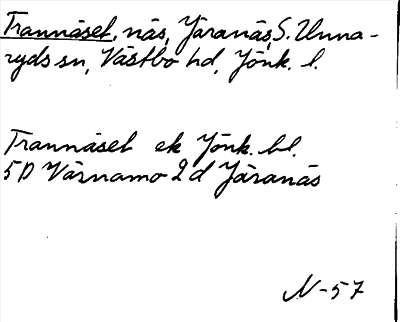 Trannäset, näs, Järanäs, S. Unna-
ryds sn, Västbo hd, Jönk. l.
Trannäset ek Jönk. bl.
5D Värnamo 2d Järanäs
N-57